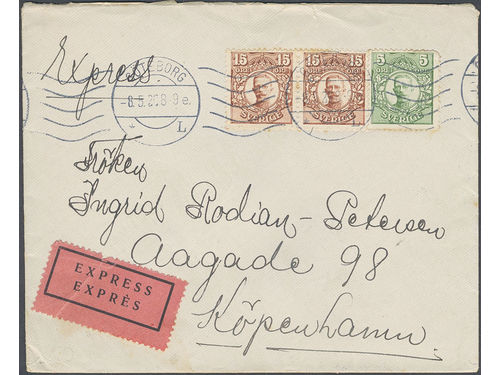 Express
GÖTEBORG
-8.5.20.8-9 e.
L
15 15 15 15 5 5
ÖRE ÖRE ÖRE ÖRE
SVERIGE SVERIGE SVERIGE
Fröken
Ingrid Rodian-Petersen
Aagade 98
Köpenhamn
EXPRESS
EXPRÈS